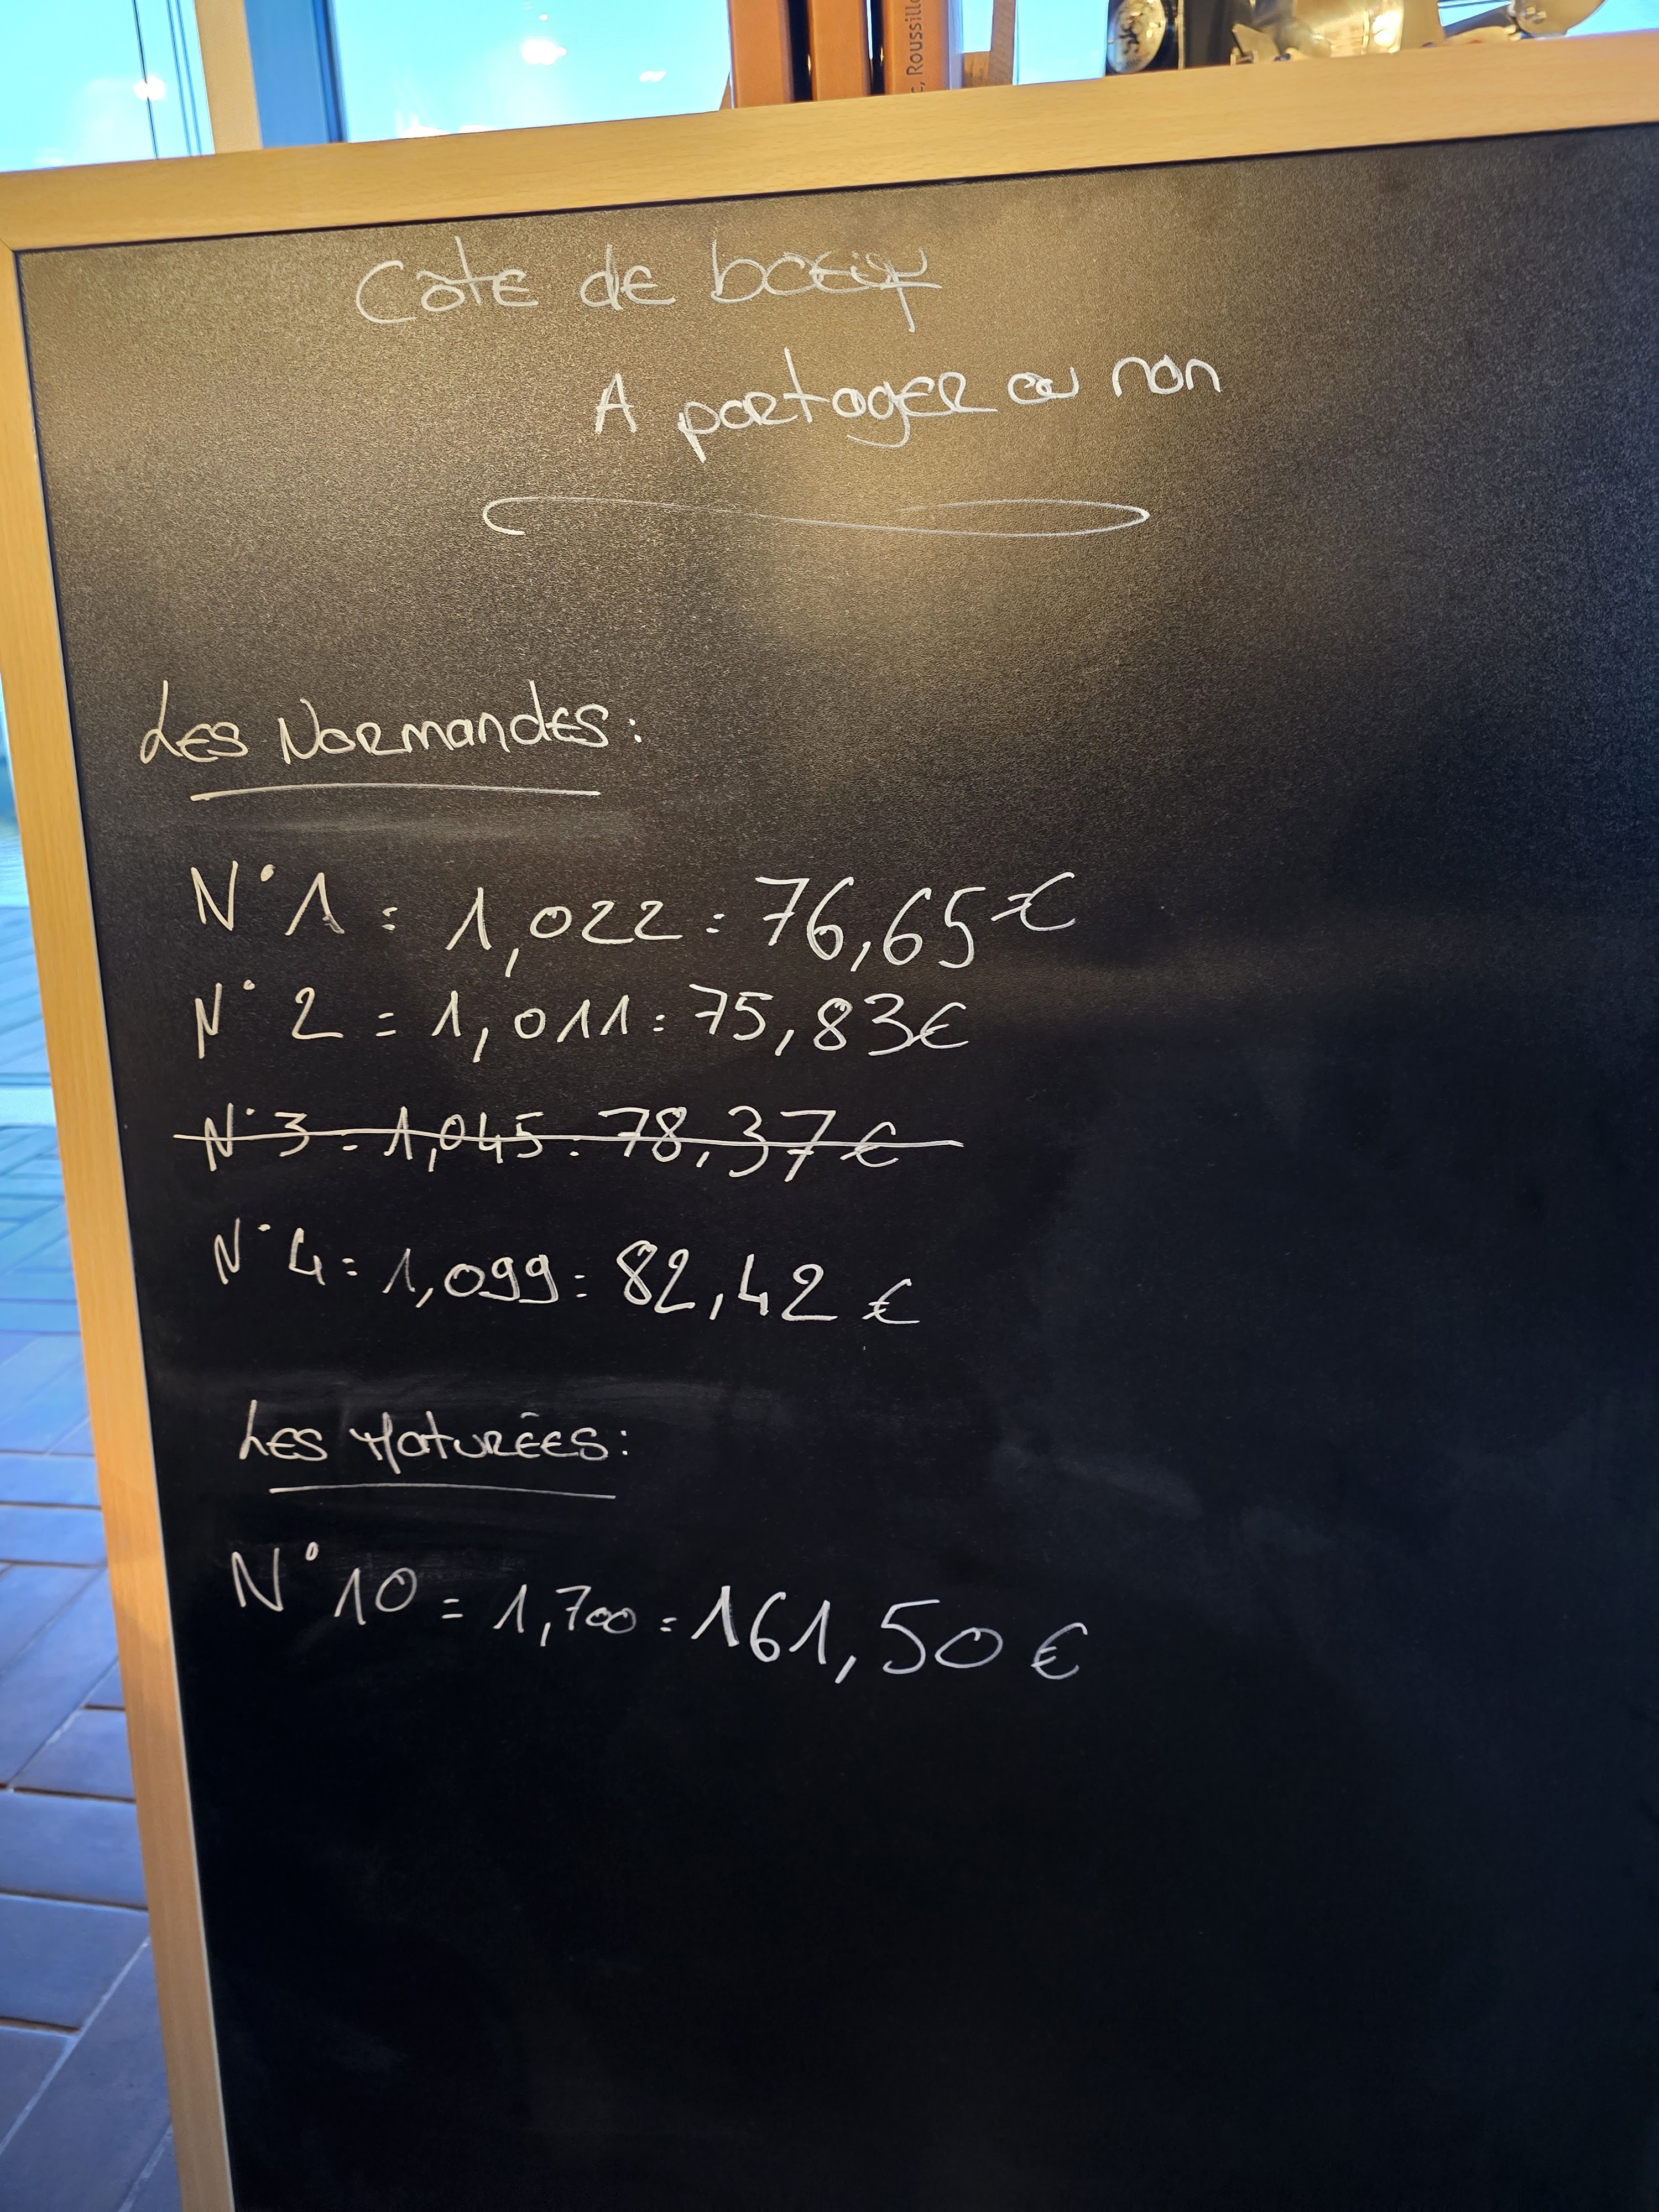 , Roussillo
Côte de boeuf
A partager ou non
Les Normandes:
N°1 = 1,022 = 76,65€
N°2 = 1,011 = 75,83€
N°3 = 1,045 = 78,37€
N°4 = 1,099 = 82,42€
Les Maturées:
N°10 = 1,700 = 161,50€